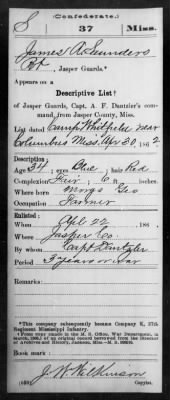 S
(Confederate.)
37
Miss.
James A. Saunders
Pvt., Jasper Guards.*
Appears on a
Descriptive List†
of Jasper Guards, Capt. A. F. Dantzler's com-
mand, from Jasper County, Miss.
List dated Camp Whitfield near
Columbus Miss. Apr 30, 186 2
Description:
Age 34; eyes Blue; hair Red
Complexion Fair; 6 ft. inches.
Where born Geo
Occupation Farmer
Enlisted:
When Apl 22, 186
Where Jasper Co.
By whom Capt Dantzler
Period 3 years or war
Remarks:
*This company subsequently became Company K, 37th
Regiment Mississippi Infantry.
†From copy made in the M. S. Office, War Department, in
March, 1909, of an original record borrowed from the Director
of Archives and History, Jackson, Miss.
Book mark:
J. W. Wilkinson
Copyist.